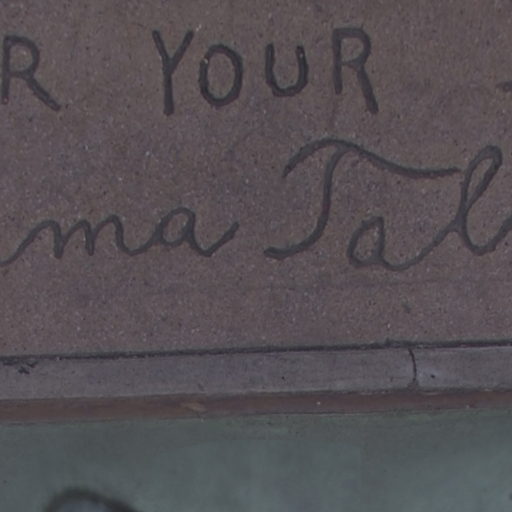 R YOUR
ma Tal